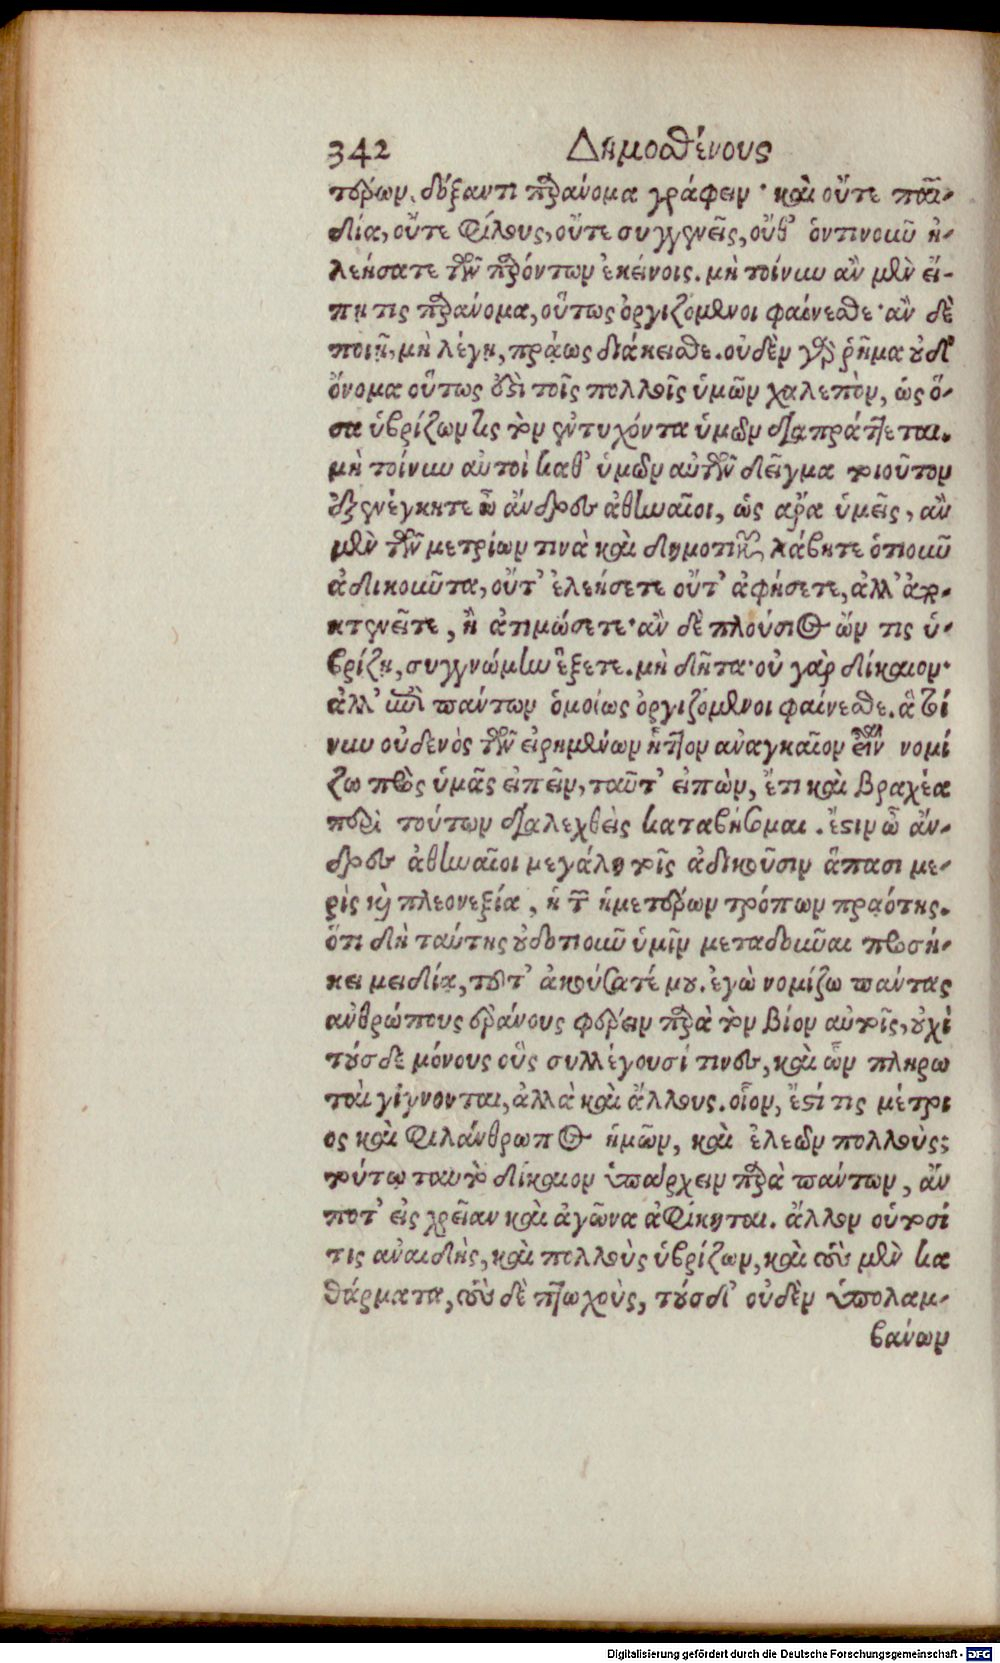 342 Δημοσθένους
τέρων, δόξαντι παράνομα γράφειν· καὶ οὔτε παι-
δία, οὔτε φίλους, οὔτε συγγενεῖς, οὔθ' ὁντινοιοῦν ἠ-
λεήσατε τῶν παρόντων ἐκείνοις. μὴ τοίνυν ἂν μὲν εἴ-
πῃ τις παράνομα, οὕτως ὀργιζόμενοι φαίνεσθε· ἂν δὲ
ποιῇ, μὴ λέγῃ, πράως διάκεισθε. οὐδὲν γὰρ ῥῆμα οὐδ'
ὄνομα οὕτως ἐστὶ τοῖς πολλοῖς ὑμῶν χαλεπὸν, ὡς ὅ-
σα ὑβρίζων τις τὸν ἐντυχόντα ὑμῶν διαπράττεται.
μὴ τοίνυν αὐτοὶ καθ' ὑμῶν αὐτῶν δεῖγμα τοιοῦτον
ἐξενέγκητε ὦ ἄνδρες ἀθηναῖοι, ὡς ἄρα ὑμεῖς, ἂν
μὲν τῶν μετρίων τινὰ καὶ δημοτικῶν λάβητε ὁτιοῦν
ἀδικοῦντα, οὔτ' ἐλεήσετε οὔτ' ἀφήσετε, ἀλλ' ἀπο-
κτενεῖτε, ἢ ἀτιμώσετε· ἂν δὲ πλούσιος ὤν τις ὑ-
βρίζῃ, συγγνώμην ἕξετε. μὴ δῆτα· οὐ γὰρ δίκαιον·
ἀλλ' ἐπὶ πάντων ὁμοίως ὀργιζόμενοι φαίνεσθε. ἃ τοί
νυν οὐδενὸς τῶν εἰρημένων ἧττον ἀναγκαῖον εἶναι νομί
ζω πρὸς ὑμᾶς εἰπεῖν, ταῦτ' εἰπὼν, ἔτι καὶ βραχέα
περὶ τούτων διαλεχθεὶς καταβήσομαι. ἔστιν ὦ ἄν-
δρες ἀθηναῖοι μεγάλη τοῖς ἀδικοῦσιν ἅπασι με-
ρὶς καὶ πλεονεξία, ἡ τῶν ἡμετέρων τρόπων πραότης.
ὅτι δὴ ταύτης οὐδοτιοῦν ὑμῖν μεταδοῦναι προσή-
κει μειδία, τοῦτ' ἀκούσατέ μου. ἐγὼ νομίζω πάντας
ἀνθρώπους ἐράνους φέρειν παρὰ τὸν βίον αὐτοῖς, οὐχὶ
τούσδε μόνους οὓς συλλέγουσί τινες, καὶ ὧν πληρω
ταὶ γίγνονται, ἀλλὰ καὶ ἄλλους. οἷον, ἔστί τις μέτρι
ος καὶ φιλάνθρωπος ἡμῶν, καὶ ἐλεῶν πολλούς;
τούτῳ ταυτὸ δίκαιον ὑπάρχειν παρὰ πάντων, ἄν
ποτ' εἰς χρεῖαν καὶ ἀγῶνα ἀφίκηται. ἄλλον οὑτοσί
τις ἀναιδὴς, καὶ πολλοὺς ὑβρίζων, καὶ τοὺς μὲν κα
θάρματα, τοὺς δὲ πτωχοὺς, τούσδ' οὐδὲν ὑπολαμ-
βάνων
Digitalisierung gefördert durch die Deutsche Forschungsgemeinschaft - DFG